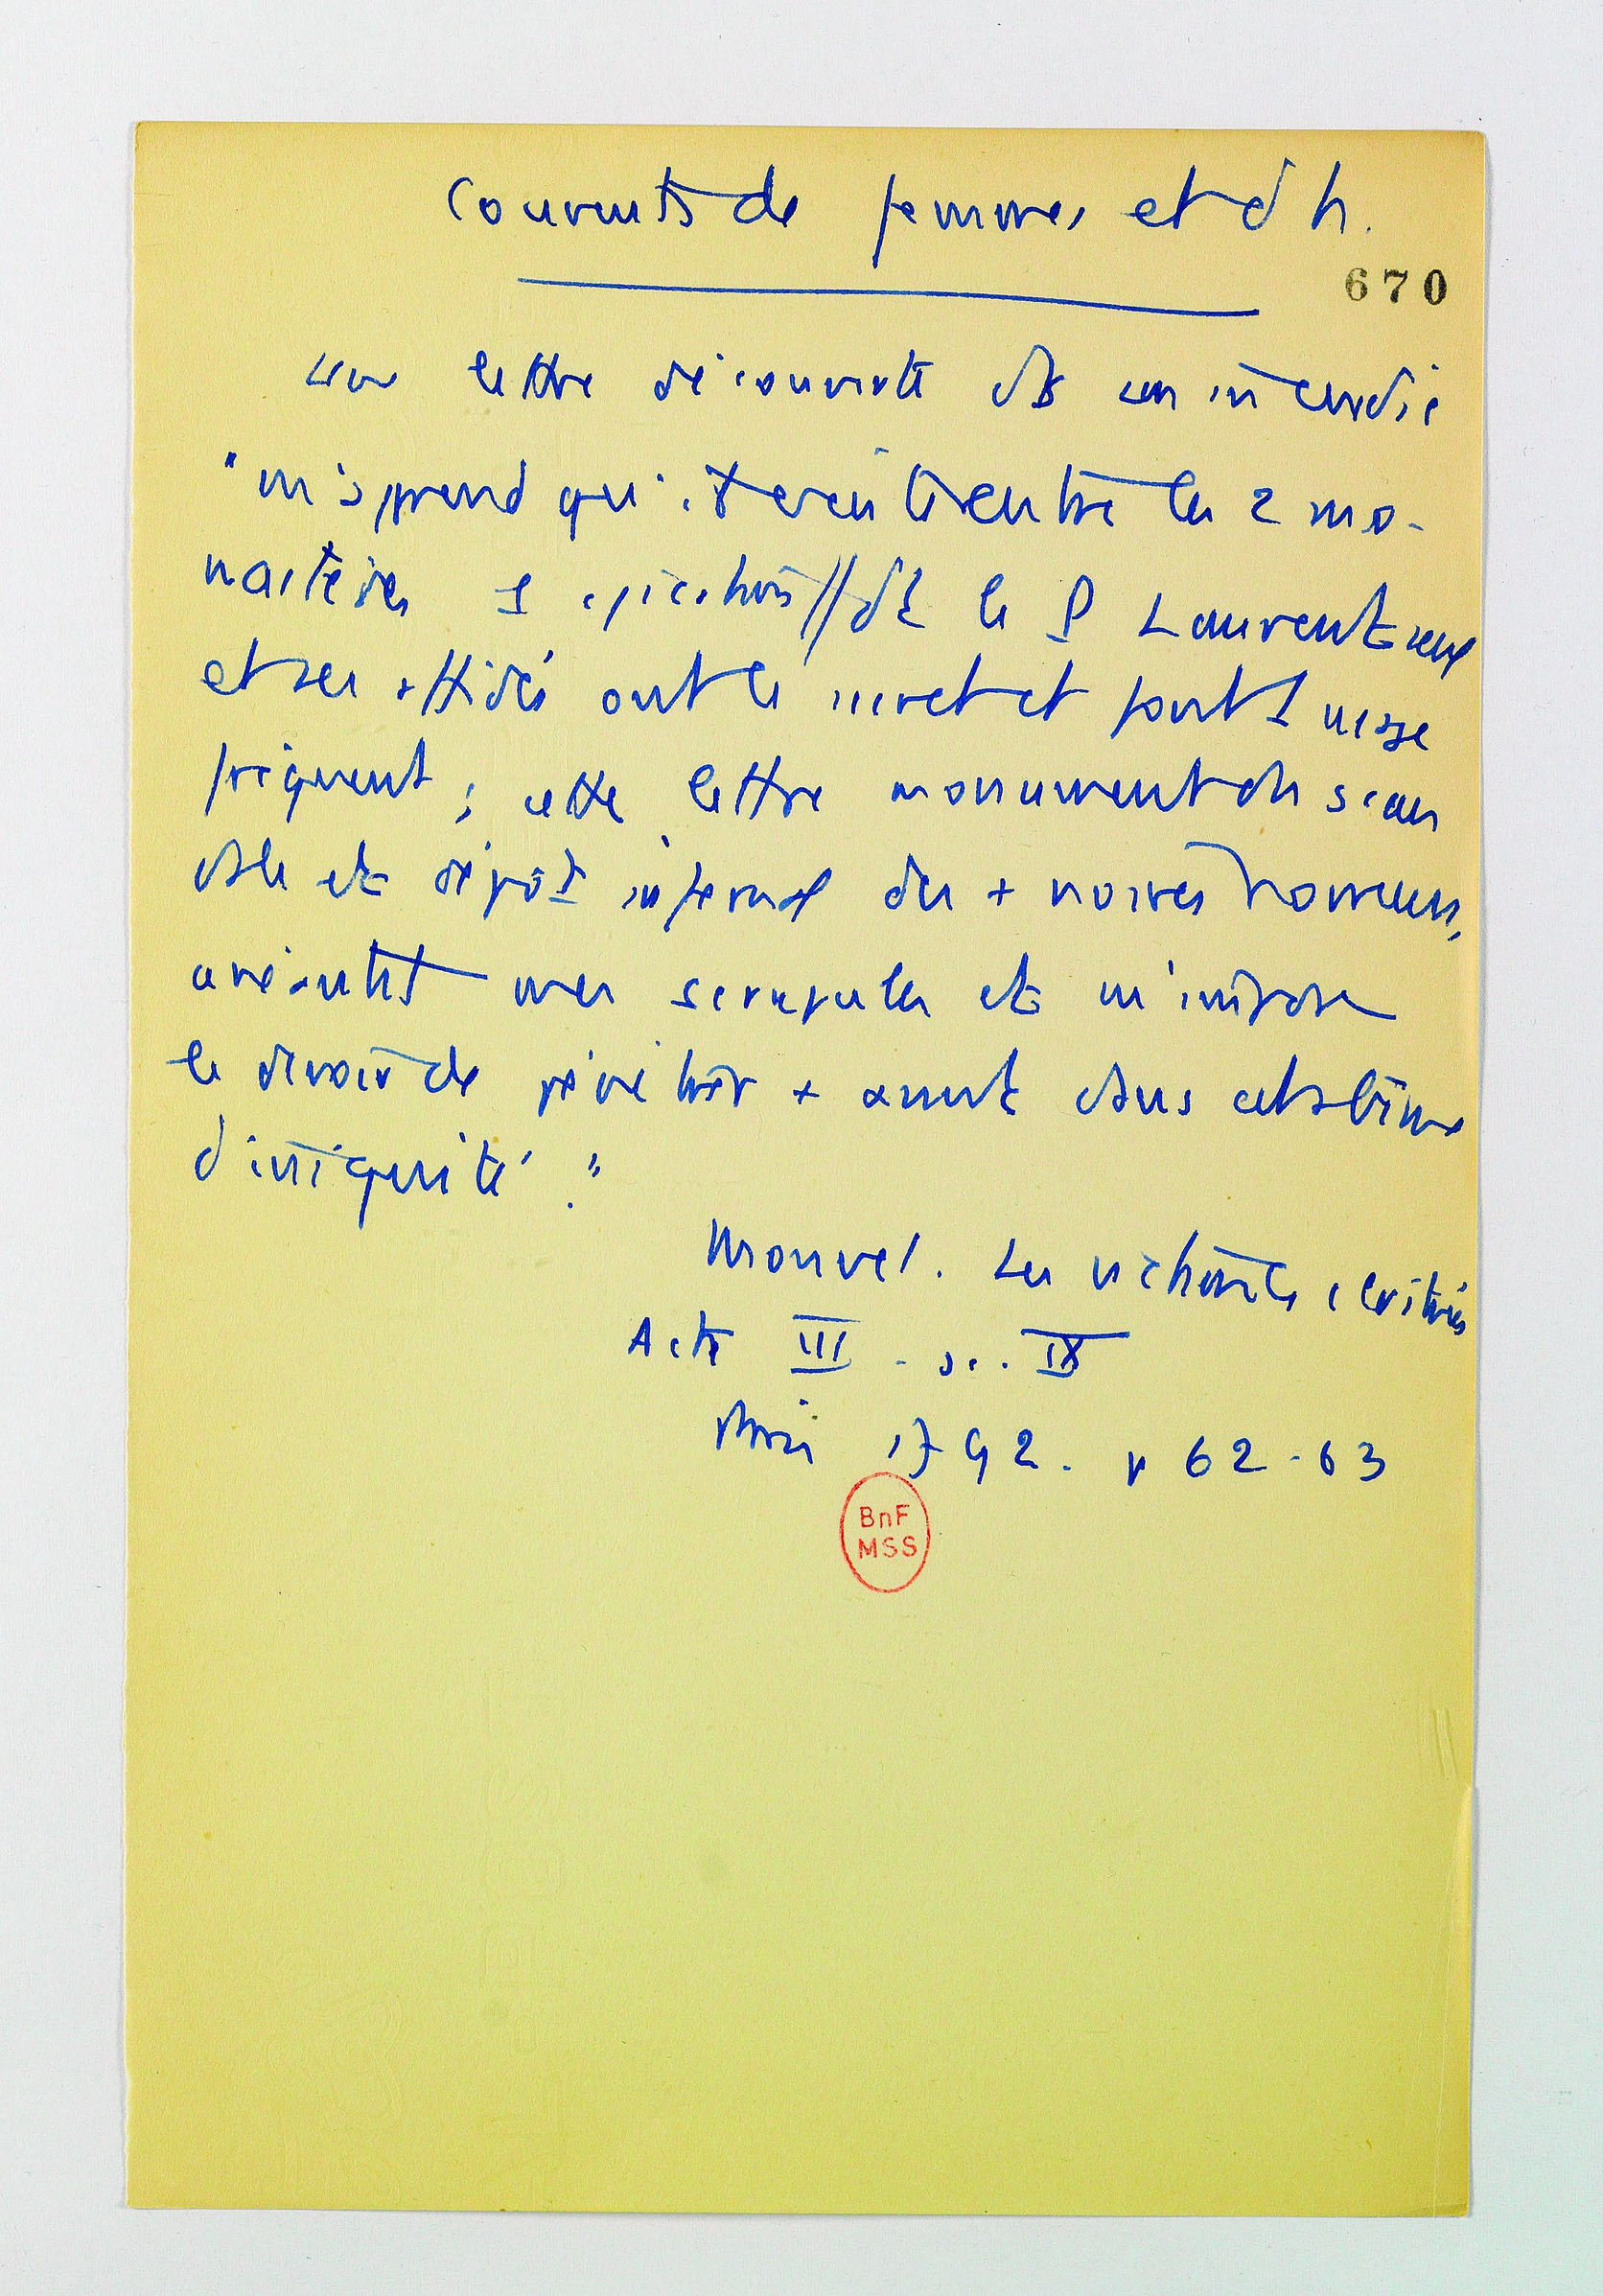 Couvents de femmes et d'h.
670
une lettre découverte ds un incendie
"m'apprend qu'il existe entre les 2 mo-
nastères 1 communication // dt le P Laurent seul
et ses affidés ont le secret et font 1 usage
fréquent ; cette lettre monument du scan
dale et dépôt infernal des + noires horreurs,
anéantit mes scrupules et m'impose
le devoir de pénétrer + avant dans cet abîme
d'iniquité."
Monvel. Les victimes cloîtrées
Acte III. sc. IX
Paris 1792. p 62-63
BnF
MSS